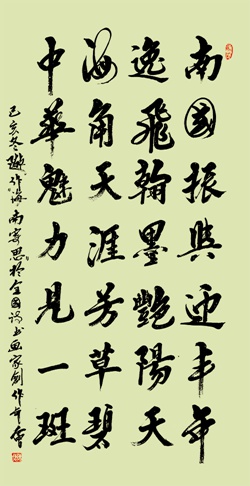 南國振興迎丰年
逸飛翰墨艷陽天
海角天涯芳草碧
中華魅力見一斑
己亥冬作海南寄思於全國詩书画家創作年會